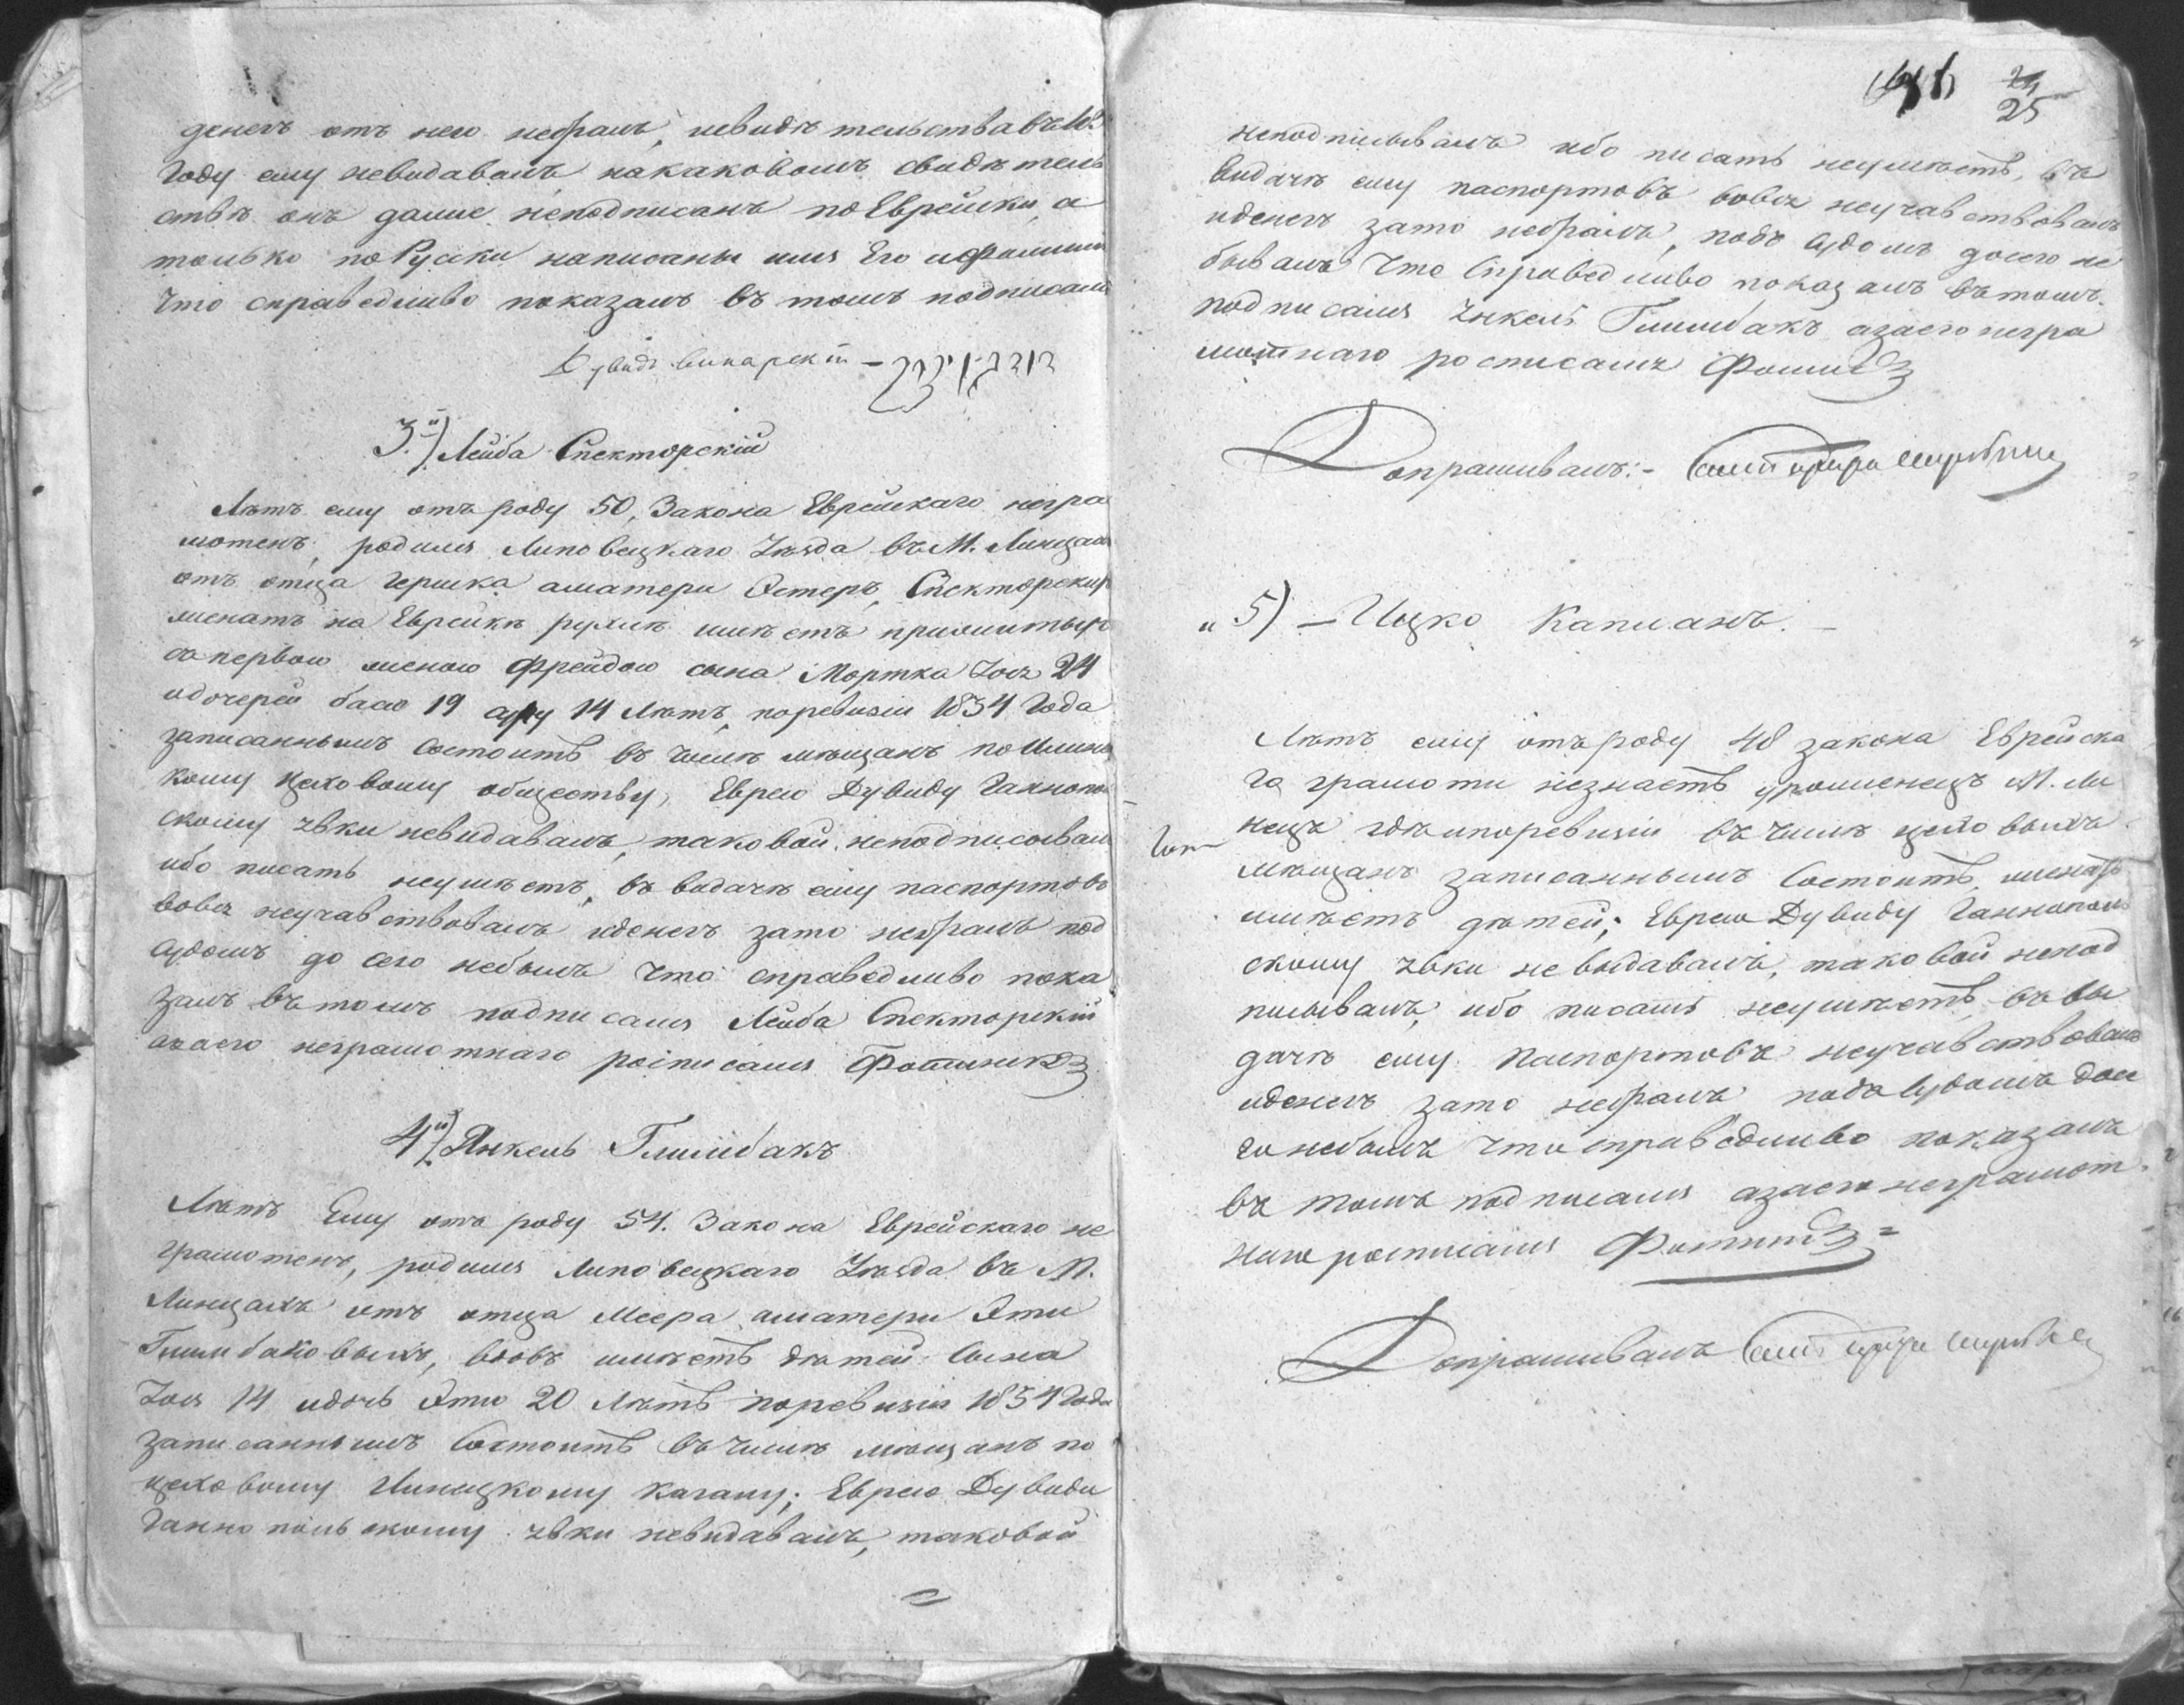 денегъ отъ него небралъ, свидѣтельства въ 18
году ему невидавалъ накаковомъ свидѣтель
ствѣ онъ даше неподписанъ по Еврейски, а
только по Руски написаны имя Его ифамилія
что справедливо показалъ въ томъ подписался
Дувидъ Винарскій
3й) Лейба Спекторскій
Лѣтъ ему отъ роду 50, Закона Еврейскаго негра
мотенъ, родился Липовецкаго Уѣзда въ М. Линцахъ
отъ отца Гершка аматери Эстеръ, Спекторскихъ
женатъ на Еврейкѣ рухлѣ имѣетъ прижитыхъ
съ первою женою Фрейдою сына Мортка Іося 24
идочерей басю 19 суру 14 Лѣтъ, поревизіи 1834 Года
записаннымъ Состоитъ въ числѣ мѣщанъ по Илинец
кому цеховому обществу, Еврею Дувиду Ганнополь
скому явки невидавалъ, таковой неподписовалъ
ибо писать неумѣетъ, въ видачѣ ему паспортовъ
вовся неучавствовалъ иденегъ зато небралъ под
судомъ до сего небылъ что справедливо пока
залъ вътомъ подписался Лейба Спекторскій
азаего неграмотнаго росписался
4й) Янкель Глимбакъ
Лѣтъ Ему отъ роду 54. Закона Еврейскаго не
грамотенъ, родился Липовецкаго Уѣзда въ М.
Линцахъ отъ отца Меера аматери Эти
Глимбаковыхъ, вдовъ имѣетъ дѣтей Сына
Іося 14 идочь Этю 20 Лѣтъ поревизіи 1854 Года
записаннымъ Состоитъ въ числѣ мѣщанъ по
цеховому Илинецкому кагалу; Еврею Дувиду
Ганнопольскому явки невидавалъ, таковой
25
неподписывалъ ибо писать неумѣетъ, въ
видачѣ ему паспортовъ вовся неучавствовалъ
иденегъ зато небралъ, подъ судомъ досего не
бывалъ Что Справедливо показалъ вътомъ
подписался Янкель Глимбакъ азаего негра
мотнаго росписался
Допрашивалъ:-
"5) – Ицко Капланъ. –
Лѣтъ ему отъ роду 48 закона Еврейска
го грамоти незнаетъ уроженецъ М. Ли
нецъ гдѣ ипоревизіи въ числѣ цеховыхъ
мѣщанъ записаннымъ Состоитъ, женатъ
имѣетъ дѣтей; Еврею Дувиду Ганнополь
скому явки невыдавалъ, таковой непод
писывалъ, ибо писать неумѣетъ, въ вы
дачѣ ему Паспортовъ неучавствовалъ
иденегъ зато небралъ подъ судомъ досе
го небылъ что справедливо показалъ
въ томъ подписался азаего неграмот
наго росписался
Допрашивалъ